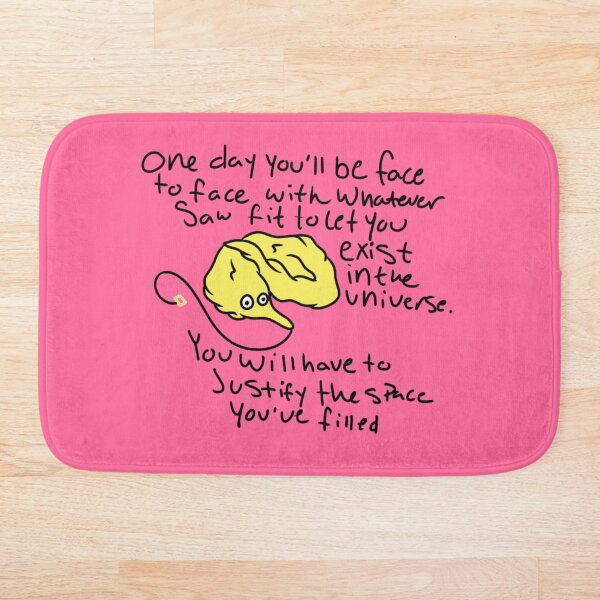 One day you'll be face
to face with whatever
Saw fit to let you
exist
in the
universe.
You will have to
Justify the space
You've filled